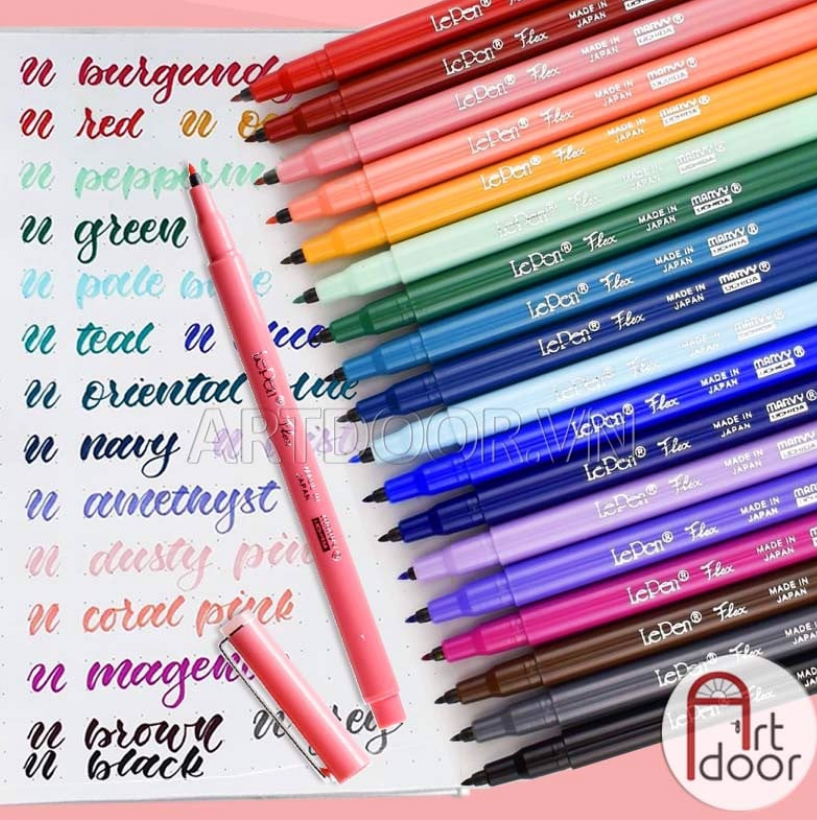 burgundy
red
green
teal
oriental
navy
amethyst
dusty pink
coral pink
brown grey
black
LePen® Flex MADE IN JAPAN MARVY UCHIDA
LePen® Flex MADE IN JAPAN MARVY UCHIDA
LePen® Flex MADE IN JAPAN MARVY UCHIDA
LePen® Flex MADE IN JAPAN MARVY UCHIDA
LePen® Flex MADE IN JAPAN MARVY UCHIDA
LePen® Flex MADE IN JAPAN MARVY® UCHIDA
LePen® Flex MADE IN JAPAN MARVY® UCHIDA
LePen® Flex MADE IN JAPAN MARVY® UCHIDA
LePen® Flex MADE IN JAPAN MARVY® UCHIDA
LePen® Flex MADE IN JAPAN MARVY® UCHIDA
LePen® Flex MADE IN JAPAN MARVY® UCHIDA
LePen® Flex MADE IN JAPAN MARVY® UCHIDA
LePen® Flex MADE IN JAPAN
LePen® Flex MADE IN JAPAN
LePen® Flex MADE IN JAPAN
LePen® Flex MADE IN JAPAN
LePen® Flex MADE IN JAPAN
LePen
LePen® Flex MADE IN JAPAN
ARTDOOR.VN
Art
door